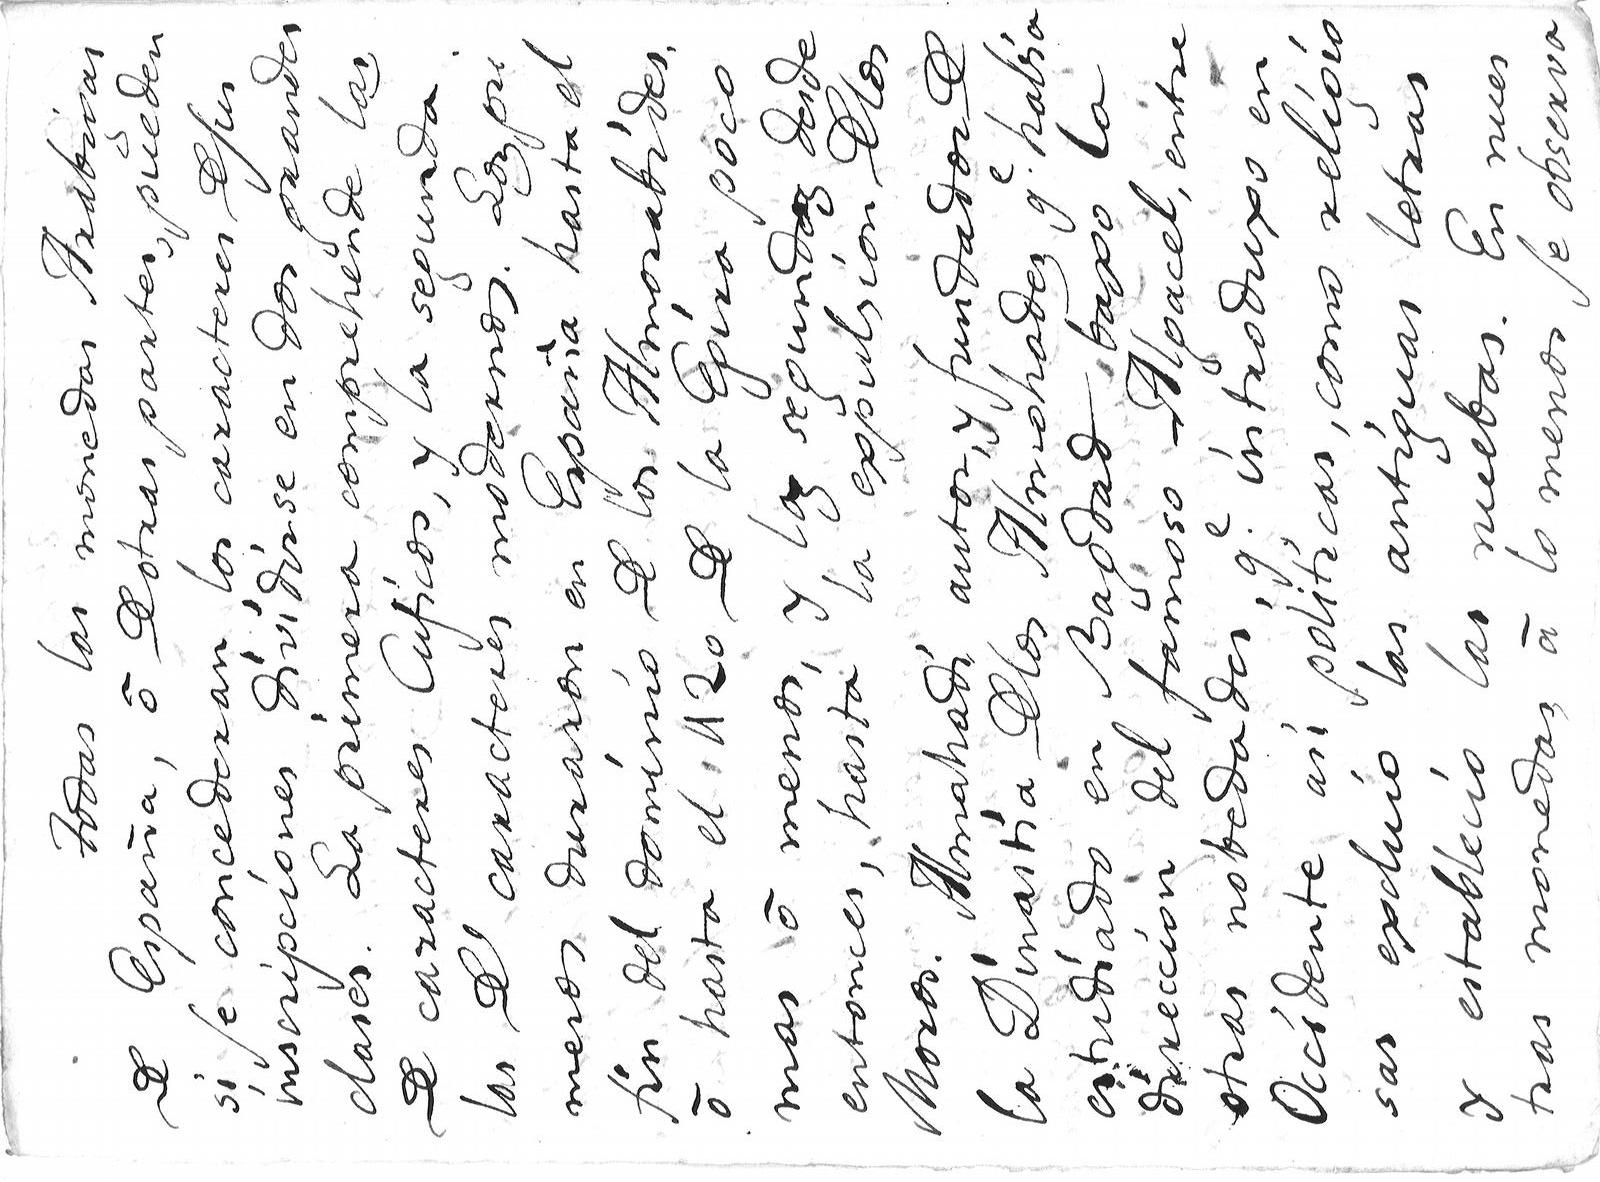 todas las monedas Arabicas
D España, ō D otras partes, pueden
si se concederan los caracteres D sus
inscripciones dividirse en dos grandes
clases. La primera comprehende las
D caracteres Cuficos, y la segunda
las D caracteres modernos. Los pri
meros duraron en España hasta el
fin del dominio D los Almorabides,
ō hasta el 1120 D la Egira poco
mas ō menos, y los segundos desde
entonces, hasta la expulsion D los
Moros. Almahadi autor, y fundador D
la Dinastia D los Almohades q.e habia
estudiado en Bagdad baxo la
direccion del famoso Algacel, entre
otras nobedades, q.e introduxo en
Occidente asi politicas, como religio
sas excluio las antiguas letras
y establecio las nuebas. En nues
tras monedas, ā lo menos se observa